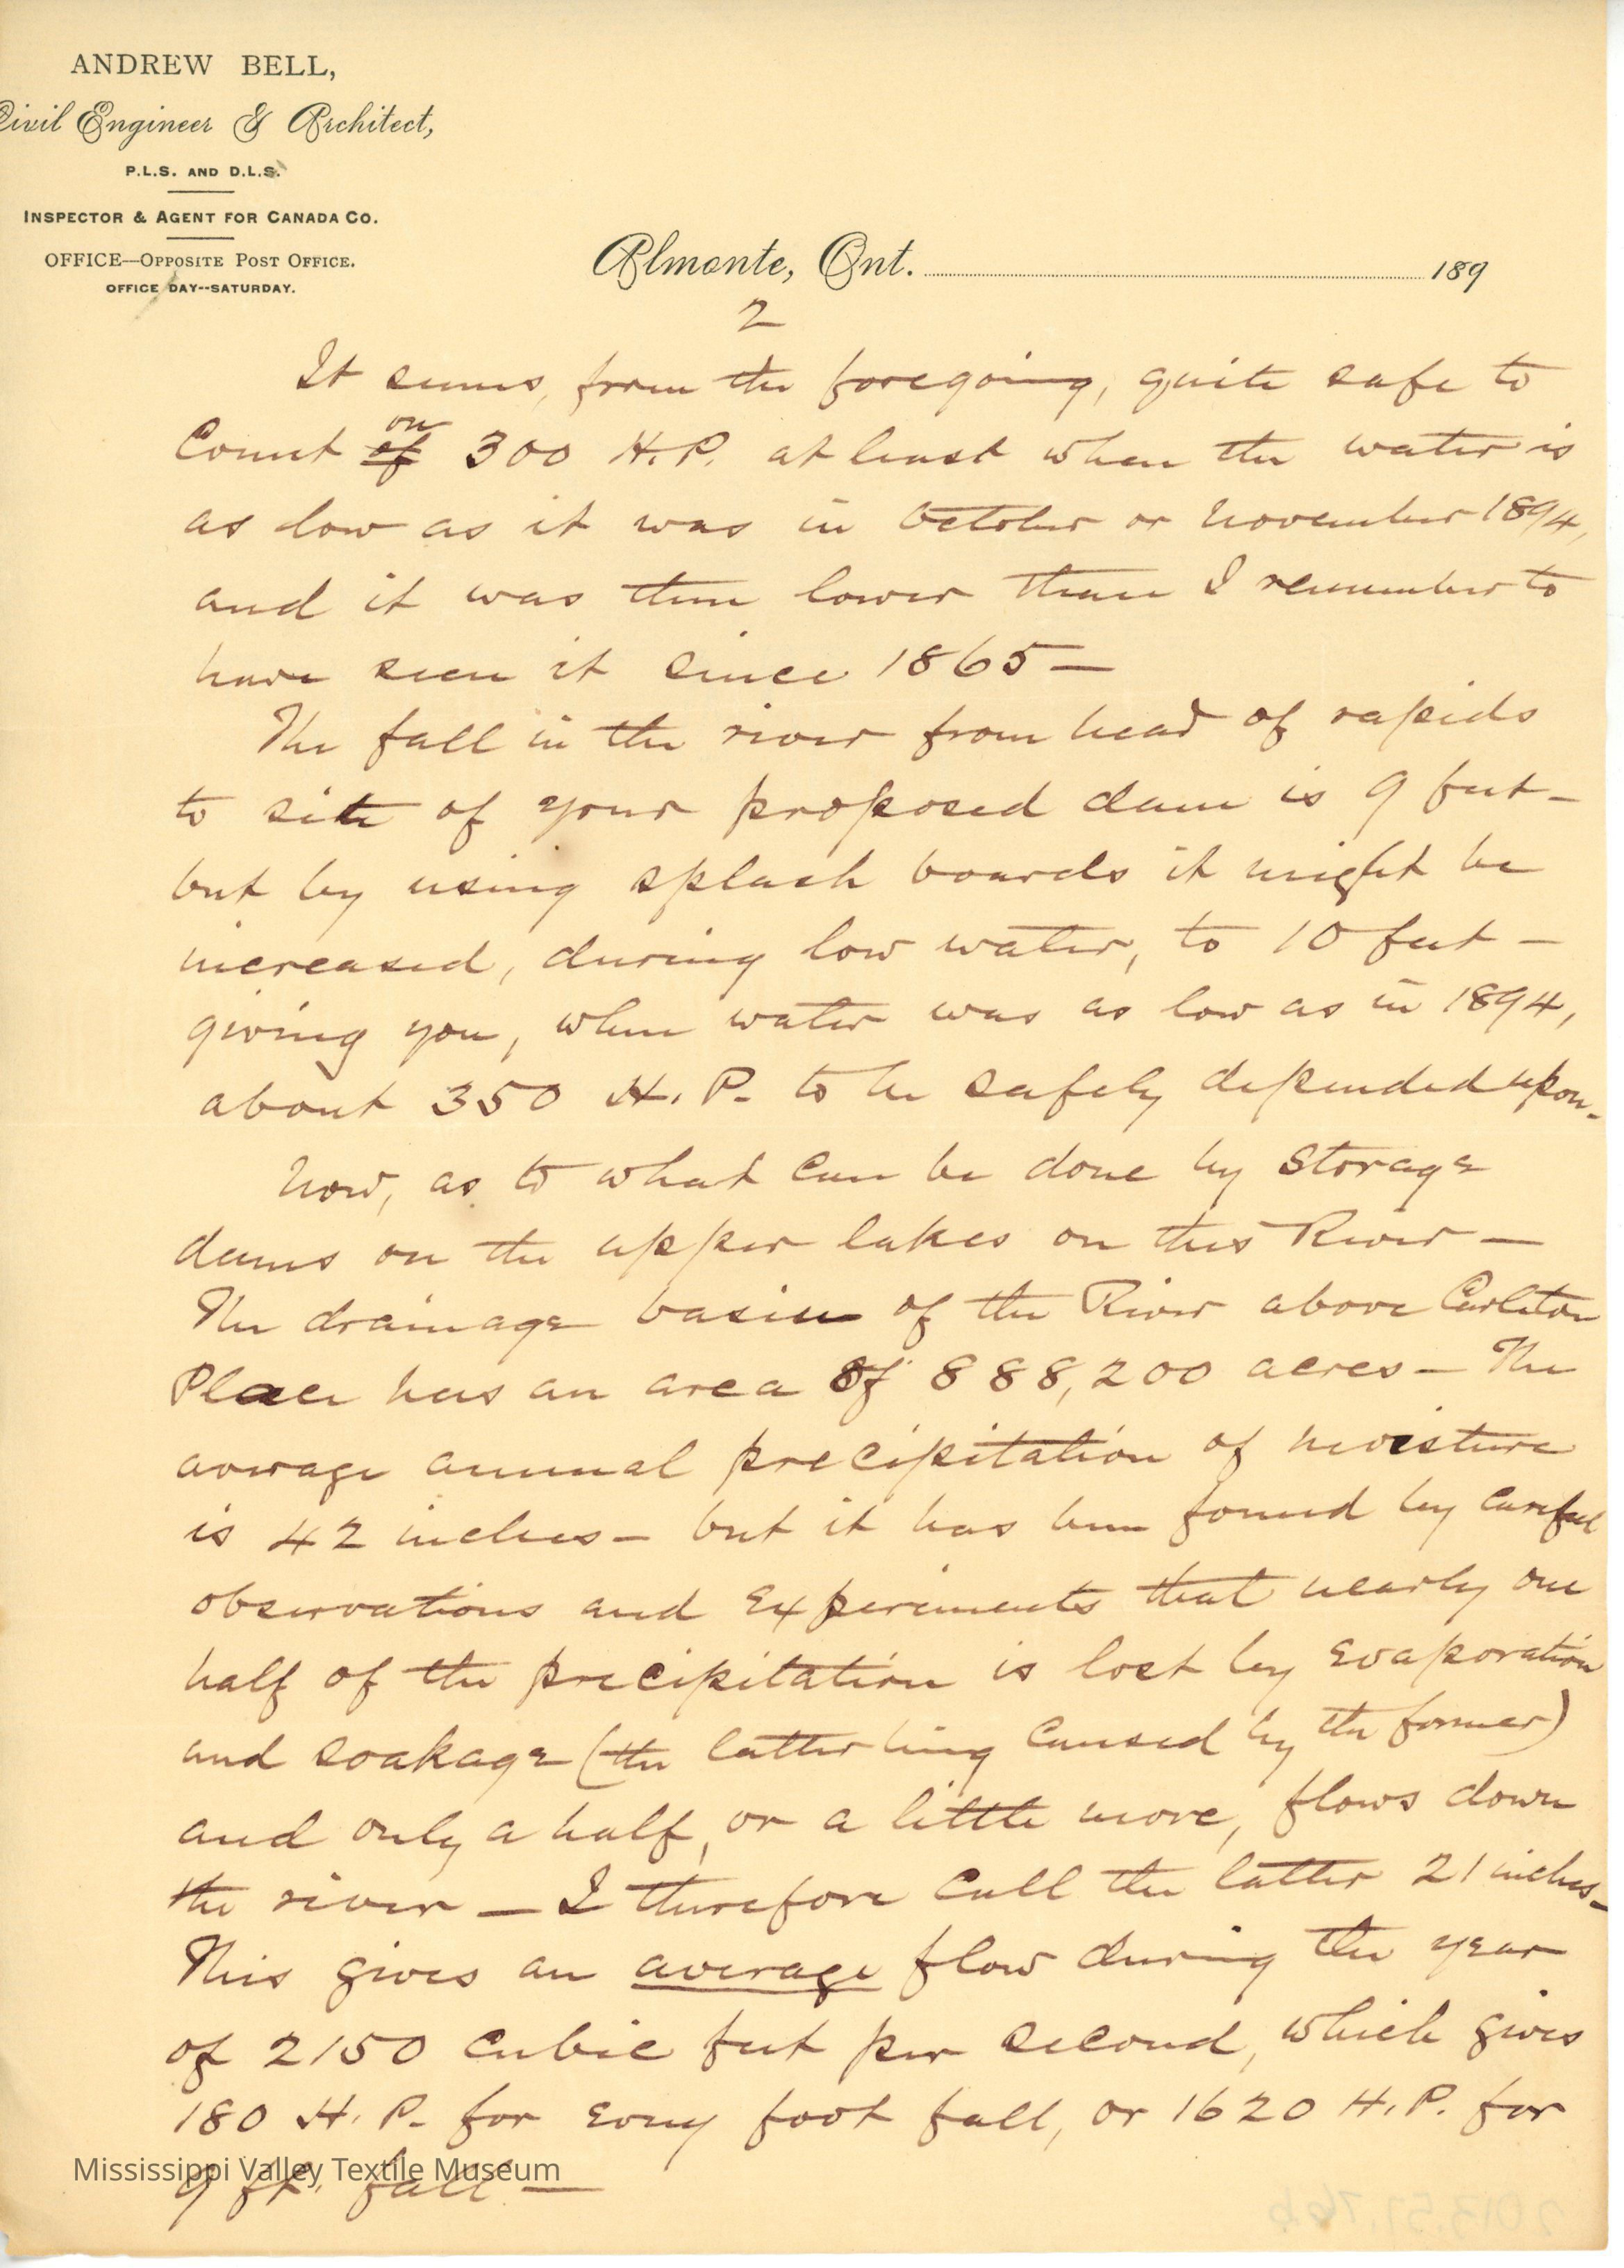 ANDREW BELL,
Civil Engineer & Architect,
P.L.S. AND D.L.S.
INSPECTOR & AGENT FOR CANADA CO.
OFFICE—OPPOSITE POST OFFICE.
OFFICE DAY--SATURDAY.
Almonte, Ont. 189
2
It seems, from the foregoing, quite safe to
on
Count of 300 H.P. at least when the water is
as low as it was in October or November 1894,
and it was then lower than I remember to
have seen it since 1865—
The fall in the river from head of rapids
to site of your proposed dam is 9 feet—
but by using splash boards it might be
increased, during low water, to 10 feet—
giving you, when water was as low as in 1894,
about 350 H.P. to be safely depended upon.
Now, as to what can be done by Storage
dams on the upper lakes on this River—
The drainage basin of the River above Carleton
Place has an area of 888,200 acres— The
average annual precipitation of moisture
is 42 inches— but it has been found by careful
observations and experiments that nearly one
half of the precipitation is lost by evaporation
and soakage (the latter being caused by the former)
and only a half, or a little more, flows down
the river— I therefore call the latter 21 inches—
This gives an average flow during the year
of 2150 cubic feet per second, which gives
180 H.P. for every foot fall, or 1620 H.P. for
9 ft. fall—
Mississippi Valley Textile Museum
2013.51.76b